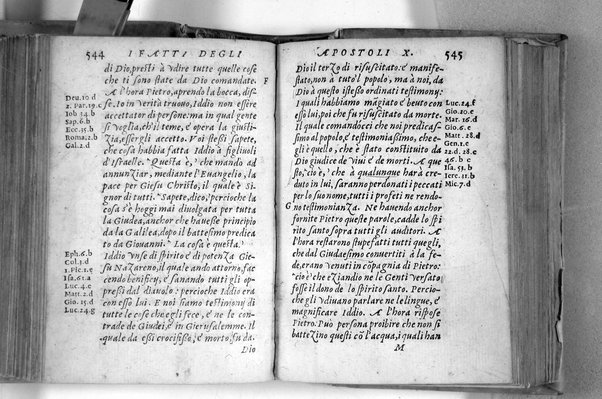 544 I FATTI DEGLI
di Dio, presti à vdire tutte quelle cose
che ti sono state da Dio comandate.
A l'hora Pietro, aprendo la bocca, dis- F
Deu.10.d
se. Io in verità truovo, Iddio non essere
2. Par.19.c
accettator di persone: ma in qual gente
Iob.34.b
si voglia, ch'il teme, e opera la giusti-
Sap.6.b
zia, essergli accetto. Voi stessi sapete,
Ecc.35.b
che cosa habbia fatta Iddio à figliuoli
Roma.2.b
d'Israelle. Questa è, che mando ad
Gal.2.d
annunziar, mediante l'Euangelio, la
pace per Giesu Christo, il quale è Si-
gnor di tutti. Sapete, dico, percioche la
cosa s'è hoggi mai diuolgata per tutta
la Giudea, anchor che hauesse principio
da la Galilea, dopo il battesimo predica
to da Giouanni. La cosa è questa.
Eph.6.b
Iddio vnse di spirito è di potenza Gie-
Col.3.d
su Nazareno, il quale ando attorno, fac-
1. Pic.1.c
cendo benificij, e sanando tutti gli op-
Isa.61.a
pressi dal diauolo: percioche Iddio era
Luc.4.c
con esso lui. E noi siamo testimonij di
Matt.2.d
tutte le cose che egli fece, è ne le con-
Gio.15.d
trade de Giudei, è in Gierusalemme. Il
Luc.24.g
quale da essi crocifisso, è morto, fu da.
Dio
APOSTOLI X. 545
Dio il terzo di risuscitato: è manife-
stato, non à tuto'l popolo, ma à noi, da
Dio à questo istesso ordinati testimony:
I quali habbiamo mãgiato è beuto con
Luc.24.f
esso lui, poi che fu risuscitato da morte.
Gio.20.e
Il quale comandocci che noi predicas-
Mar.16.d
simo al popolo, è testimoniasimo, che e-
Gio.6.e
gli è quello, che è stato constituito da
Matt.28.d
Dio giudice de' viui è de morti. A que
Gen.1.c
sto, cio è, che à qualunque harà cre
22.d. 28.c
duto in lui, saranno perdonati i peccati
46.b c
per lo suo nome, tutti i profeti ne rendo-
Isa.53.b
G no testimonianza. Ne hauendo anchor
Iere.31.b
fornite Pietro queste parole, cadde lo spi
Mic.7.d
rito santo sopra tutti gli auditori. A
l'hora restarono stupefatti tutti quegli,
che dal Giudaesimo conuertiti à la fe-
de, erano venuti in cõpagnia di Pietro:
cio è che eziandio ne le Genti versato
fosse il dono de lo spirito santo. Percio-
che gli vdiuano parlare ne le lingue, è
magnificare Iddio. A l'hora rispose
Pietro. Può persona proibire che non si
battezino questi cõ l'acqua, i quali han
M